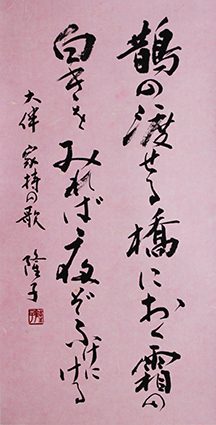 鵲の渡せる橋におく霜の
白きを みれば夜ぞふけにける
大伴 家持の歌 隆子